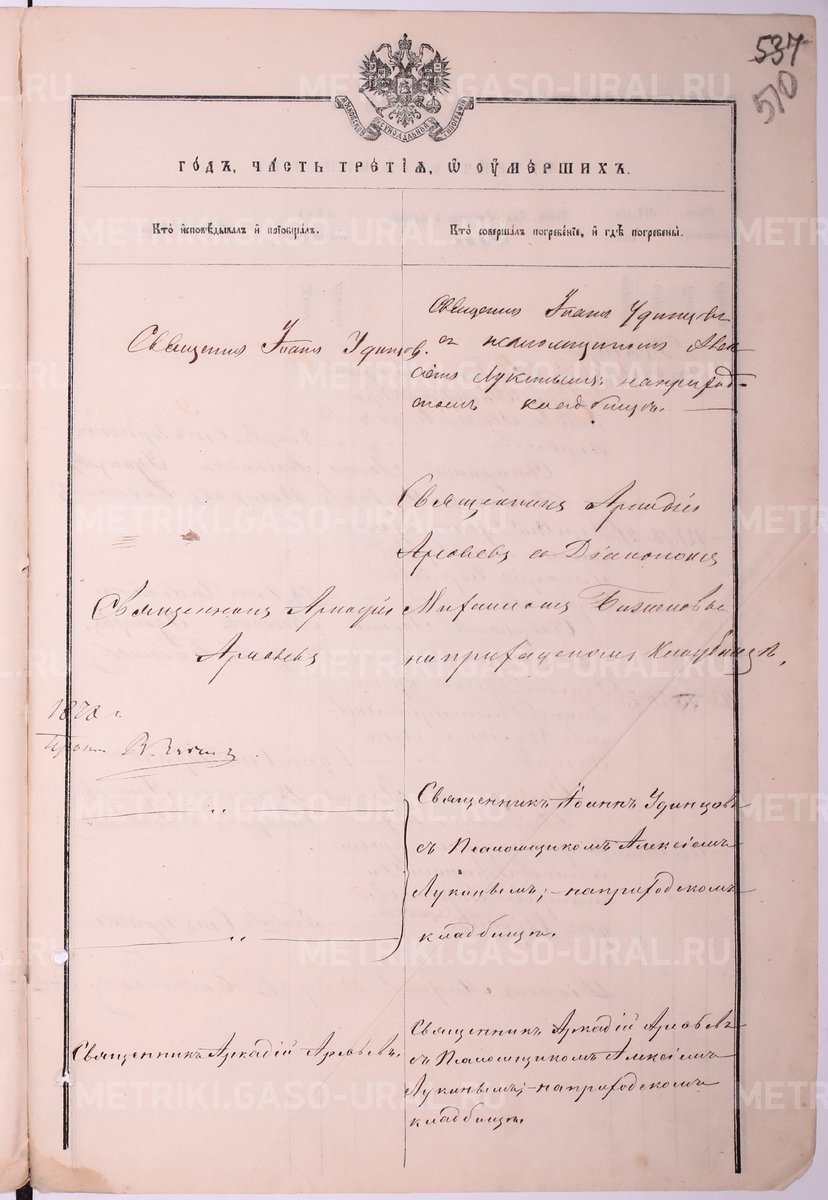 537
510
МОСКОВСКОЙ СѴНОДАЛЬНОЙ ТИПОГРАФІИ
ГОДЪ, ЧАСТЬ ТРЕТІЯ, Ѿ ОУМЕРШИХЪ.
Кто исповѣдывалъ и пріобщалъ.
Кто совершалъ погребеніе, и гдѣ погребены.
Священникъ Іоаннъ Удинцов.
Священникъ Іоаннъ Удинцовъ
съ псаломщикомъ Алек
сіемъ Лукинымъ: на приход-
скомъ кладбищѣ.
Священникъ Аркадій
съ Діакономъ
Священникъ Аркадій
Михаиломъ
на приходскомъ Кладбищѣ,
1878 г.
Священникъ Іоаннъ Удинцовъ
съ Псаломщикомъ Алексіемъ
Лукинымъ; – на приходскомъ
кладбищѣ.
Священникъ Аркадій
Священникъ Аркадій
съ Псаломщикомъ Алексіемъ
Лукинымъ; – на приходскомъ
кладбищѣ.
METRIKI.GASO-URAL.RU